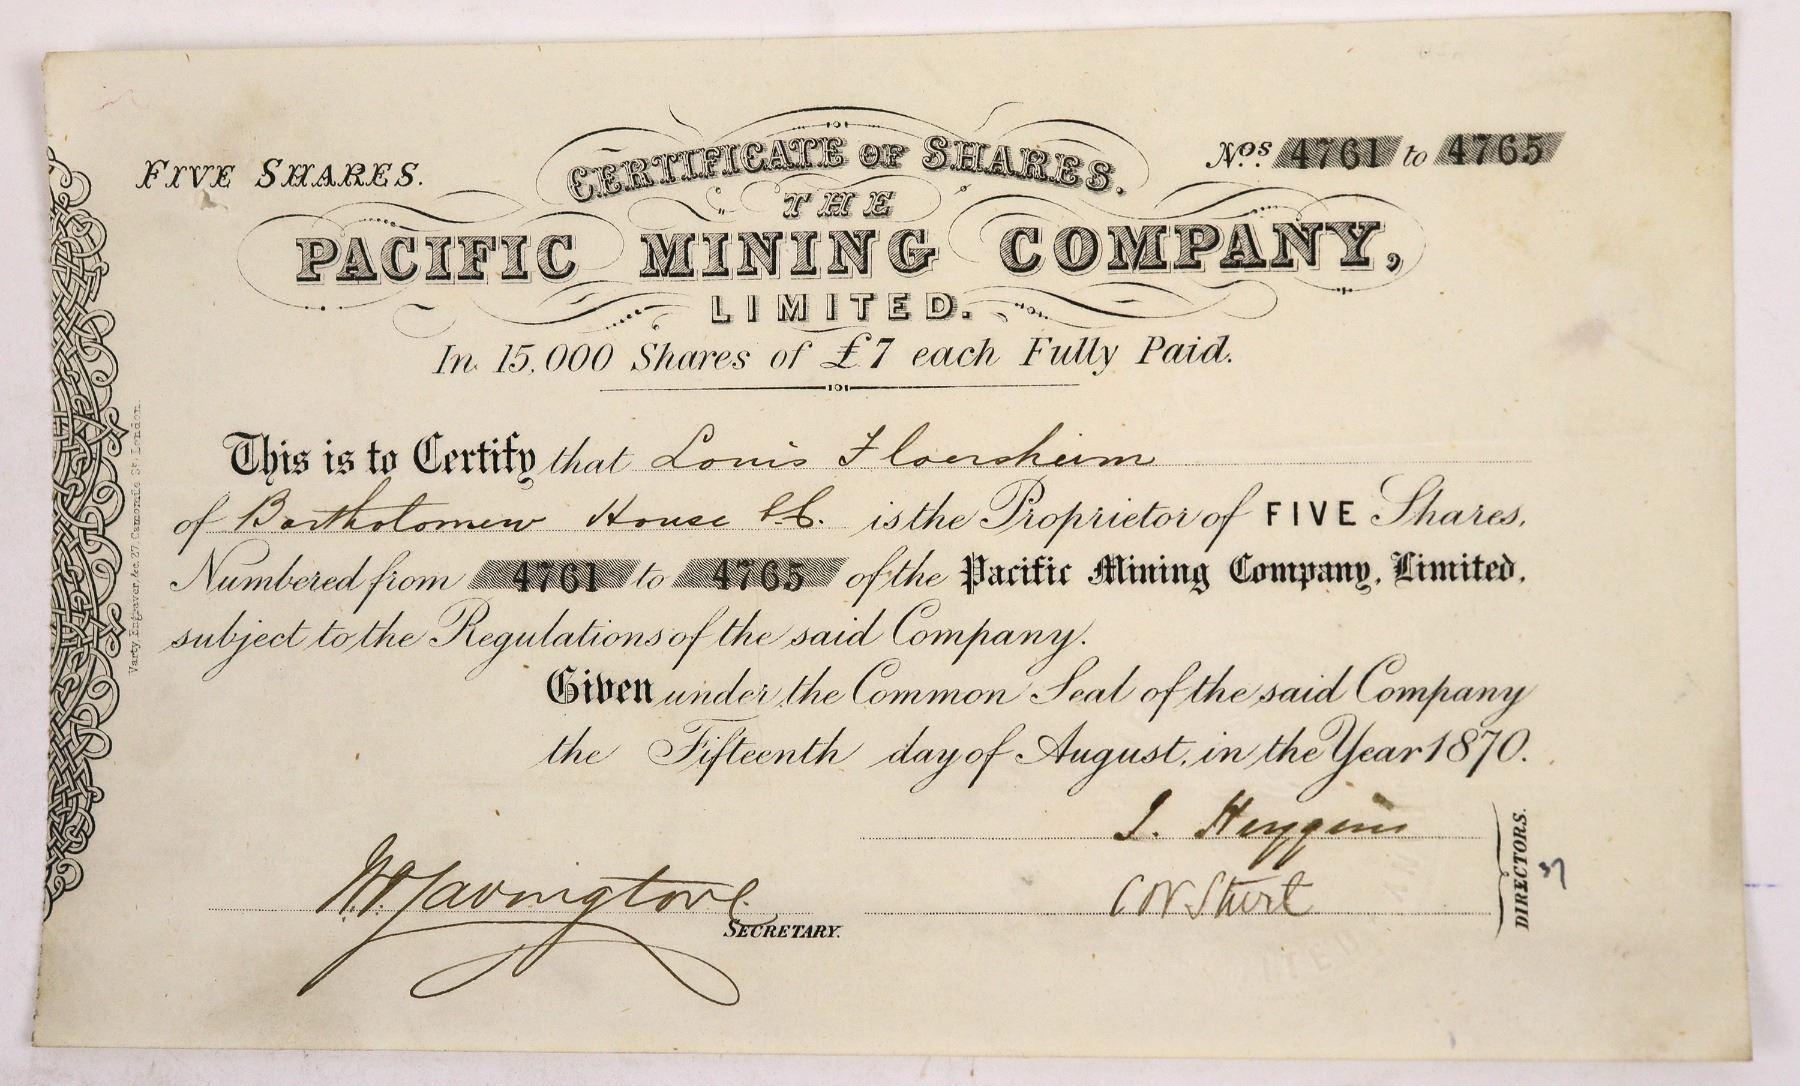 FIVE SHARES.
CERTIFICATE OF SHARES.
Nos. 4761 to 4765
THE
PACIFIC MINING COMPANY,
LIMITED.
In 15,000 Shares of £7 each Fully Paid.
This is to Certify that Louis Floersheim
of Bartholomew House E.C. is the Proprietor of FIVE Shares,
Numbered from 4761 to 4765 of the Pacific Mining Company, Limited,
subject to the Regulations of the said Company.
Given under the Common Seal of the said Company
the Fifteenth day of August, in the Year 1870.
SECRETARY.
C W Sturt
DIRECTORS.
37
Varty, Engraver, &c. 27, Camomile St. London.